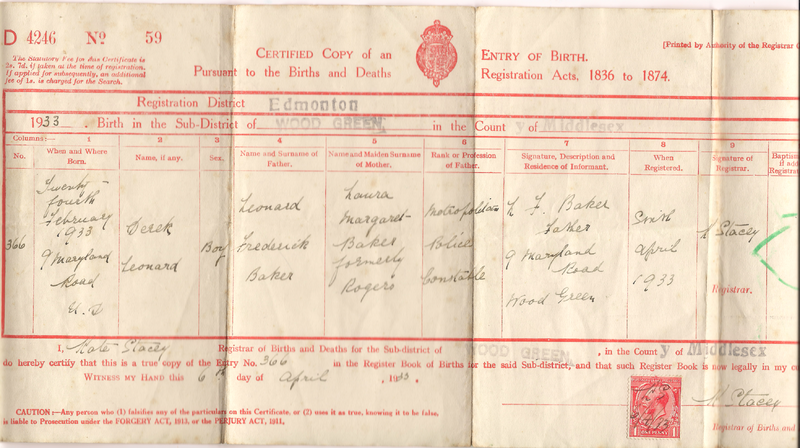 D 4246 Nº 59
The Statutory Fee for this Certificate is
2s. 7d. if taken at the time of registration.
If applied for subsequently, an additional
fee of 1s. is charged for the Search.
CERTIFIED COPY of an ENTRY OF BIRTH.
Pursuant to the Births and Deaths Registration Acts, 1836 to 1874.
[Printed by Authority of the Registrar
Registration District Edmonton
1933. Birth in the Sub-District of WOOD GREEN, in the County of Middlesex
Columns:— 1 2 3 4 5 6 7 8 9
No.
When and Where
Born.
Name, if any.
Sex.
Name and Surname of
Father.
Name and Maiden Surname
of Mother.
Rank or Profession
of Father.
Signature, Description and
Residence of Informant.
When
Registered.
Signature of
Registrar.
366
Twenty
fourth
February
1933
9 Maryland
Road
Derek
Leonard
Boy
Leonard
Frederick
Baker
Laura
Margaret
Baker
formerly
Rogers
Metropolitan
Police
Constable
L F. Baker
Father
9 Maryland
Road
Wood Green
Sixth
April
1933
K Stacey
Registrar.
I, Kate Stacey, Registrar of Births and Deaths for the Sub-district of WOOD GREEN, in the County of Middlesex
do hereby certify that this is a true copy of the Entry No. 366 in the Register Book of Births for the said Sub-district, and that such Register Book is now legally in my
WITNESS MY HAND this 6th day of April, 1933.
CAUTION:—Any person who (1) falsifies any of the particulars on this Certificate, or (2) uses it as true, knowing it to be false,
is liable to Prosecution under the FORGERY ACT, 1913, or the PERJURY ACT, 1911.
K Stacey
Registrar of Births and